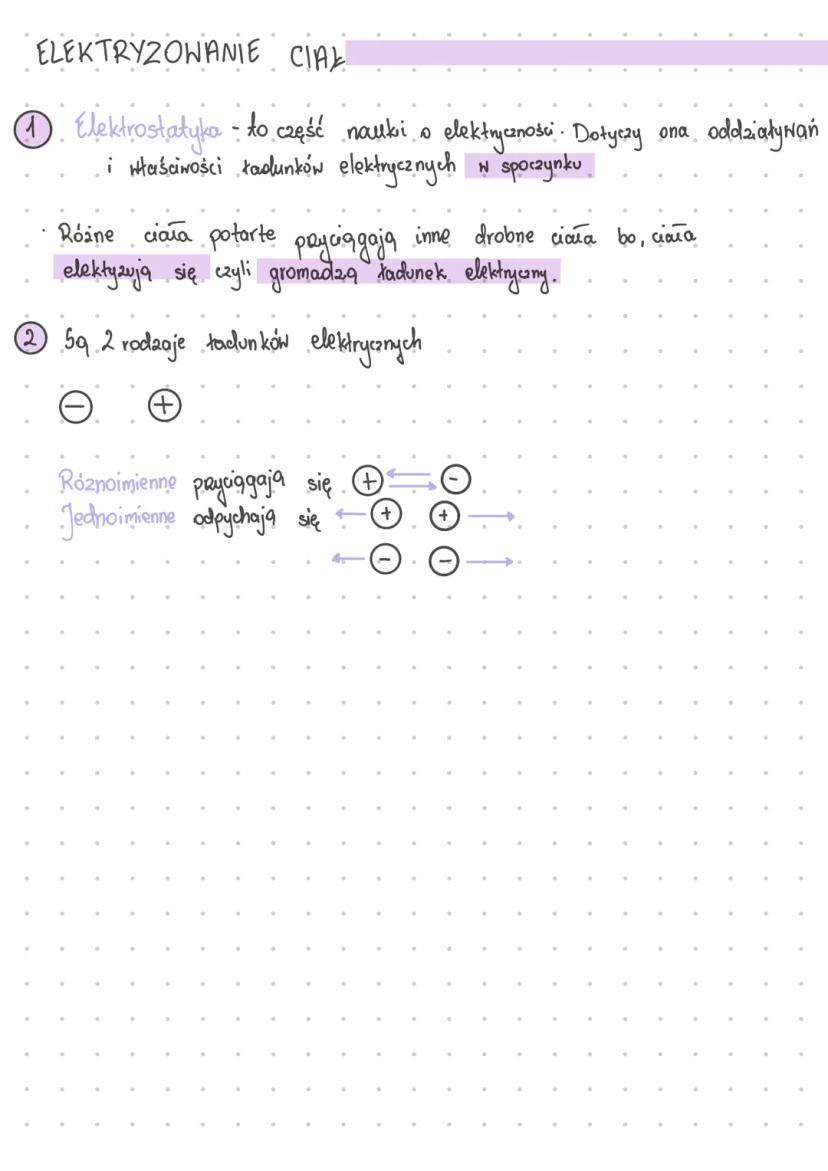 ELEKTRYZOWANIE CIAŁ
1 Elektrostatyka - to część nauki o elektryczności. Dotyczy ona oddziaływań
i właściwości ładunków elektrycznych w spoczynku
· Różne ciała potarte przyciągają inne drobne ciała bo, ciała
elektyzują się czyli gromadzą ładunek elektryczny.
2 Są 2 rodzaje ładunków elektrycznych
− +
Róznoimienne przyciągają się + −
Jednoimienne odpychają się + +
− −